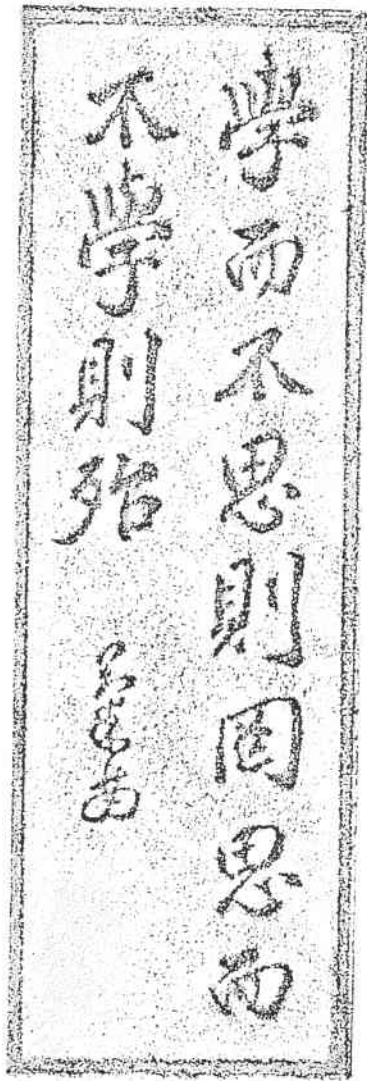 學而不思則罔思而
不學則殆